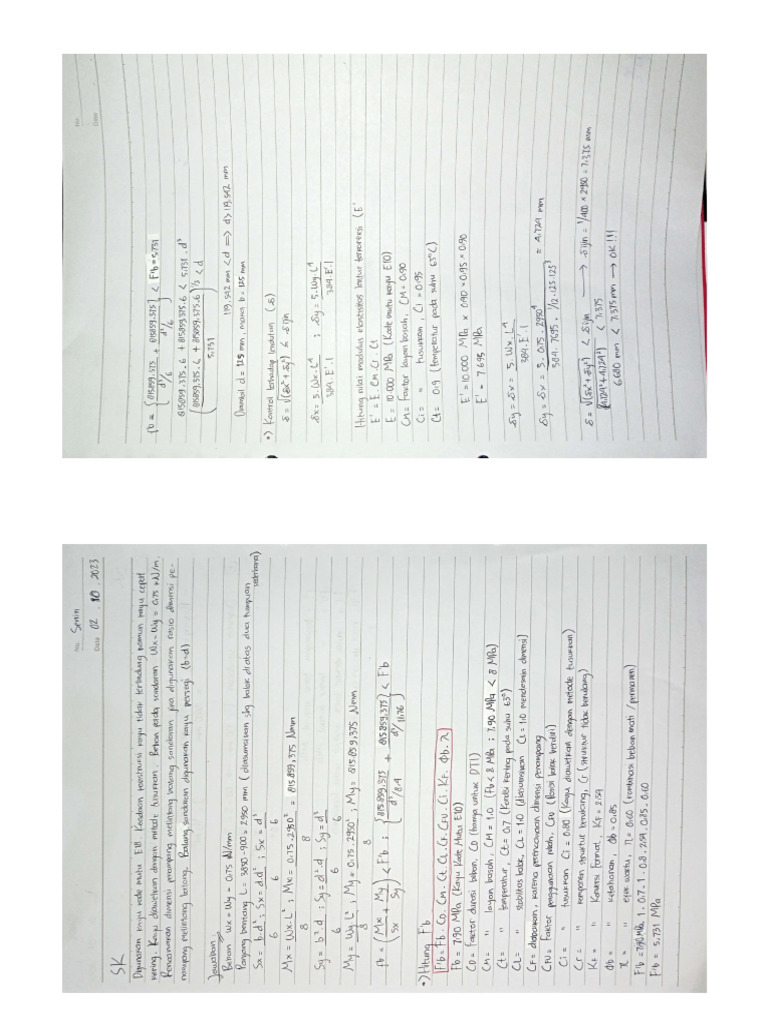 No. Senin
Date 02 . 10 . 2023
SK
Digunakan kayu kode mutu E10. Keadaan konstruksi kayu tidak terlindung namun kayu cepat
kering. Kayu diawetkan dengan metode tusukan. Beban pada sandaran Wx=Wy = 0.75 kN/m.
Rencanakan dimensi penampang melintang batang sandaran jika digunakan rasio dimensi pe-
nampang melintang batang. Batang sandaran digunakan kayu persegi (b=d)
Jawaban :
Beban Wx = Wy = 0.75 N/mm
Panjang bentang L = 3850 - 900 = 2950 mm (diasumsikan sbg balok diatas dua tumpuan
sederhana)
Sx = b.d² ; Sx = d.d² ; Sx = d³
6 6 6
Mx = Wx.L² ; Mx = 0.75.2950² = 815.859,375 Nmm
8 8
Sy = b².d ; Sy = d².d ; Sy = d³
6 6 6
My = Wy.L² ; My = 0.75.2950² ; My = 815.859,375 Nmm
8 8
fb = (Mx + My) < F'b ; [815.859,375 + 815.859,375] < F'b
Sx Sy
•) Hitung F'b
F'b = Fb . CD . Cm . Ct . CL . CF . CFU . Ci . KF . Φb . λ
Fb = 7.90 MPa (Kayu Kode Mutu E10)
CD = Faktor durasi beban, CD (hanya untuk DTI)
CM = " layan basah, CM = 1.0 (Fb < 8 MPa ; 7,90 MPa < 8 MPa)
Ct = " temperatur, Ct = 0.7 (Kondisi kering pada suhu 63°)
CL = " stabilitas balok, CL = 1.0 (diasumsikan CL = 1.0 mendesain dimensi)
CF = diabaikan, karena perencanaan dimensi penampang
CFU = Faktor penggunaan rebah, CFU (Posisi balok berdiri)
Ci = " tusukan Ci = 0.80 (Kayu diawetkan dengan metode tusukan)
Cr = " komponen struktur berulang, Cr (struktur tidak berulang)
KF = " Konversi Format, KF = 2.54
Φb = " ketahanan, Φb = 0.85
λ = " efek waktu, λ = 0.60 (kombinasi beban mati / permanen)
F'b = 7,90 MPa . 1 . 0.7 . 1 . 0.8 . 2.54 . 0.85 . 0.60
F'b = 5,731 MPa
No
Date
fb = [815859,375 + 815859,375] < F'b = 5,731
d³/6 d³/6
815859,375.6 + 815859,375.6 < 5,731 . d³
5,731
119,542 mm < d ⟹ d > 119,542 mm
Diambil d = 125 mm, maka b = 125 mm
•) Kontrol terhadap lendutan (δ)
δ = √(δx² + δy²) ≤ δ ijin
δx = 5.Wx.L⁴ ; δy = 5.Wy.L⁴
384.E'.I 384.E'.I
Hitung nilai modulus elastisitas lentur terkoreksi (E'
E' = E . Cm . Ci . Ct
E = 10.000 MPa (Kode mutu kayu E10)
CM = faktor layan basah, CM = 0.90
Ci = " tusukan, Ci = 0.95
Ct = 0.9 (temperatur pada suhu 63°C)
E' = 10.000 MPa × 0.90 × 0.95 × 0.90
E' = 7.695 MPa
δy = δx = 5. Wx. L⁴
384. E'. I
δy = δx = 5 . 0.75 . 2950⁴ = 4,724 mm
384 . 7695 . 1/12 . 125.125³
δ = √(δx² + δy²) < δ ijin ⟶ δ ijin = 1/400 × 2950 = 7.375 mm
√(4,724² + 4,724²) < 7.375
6.680 mm < 7.375 mm ⟶ OK!!!